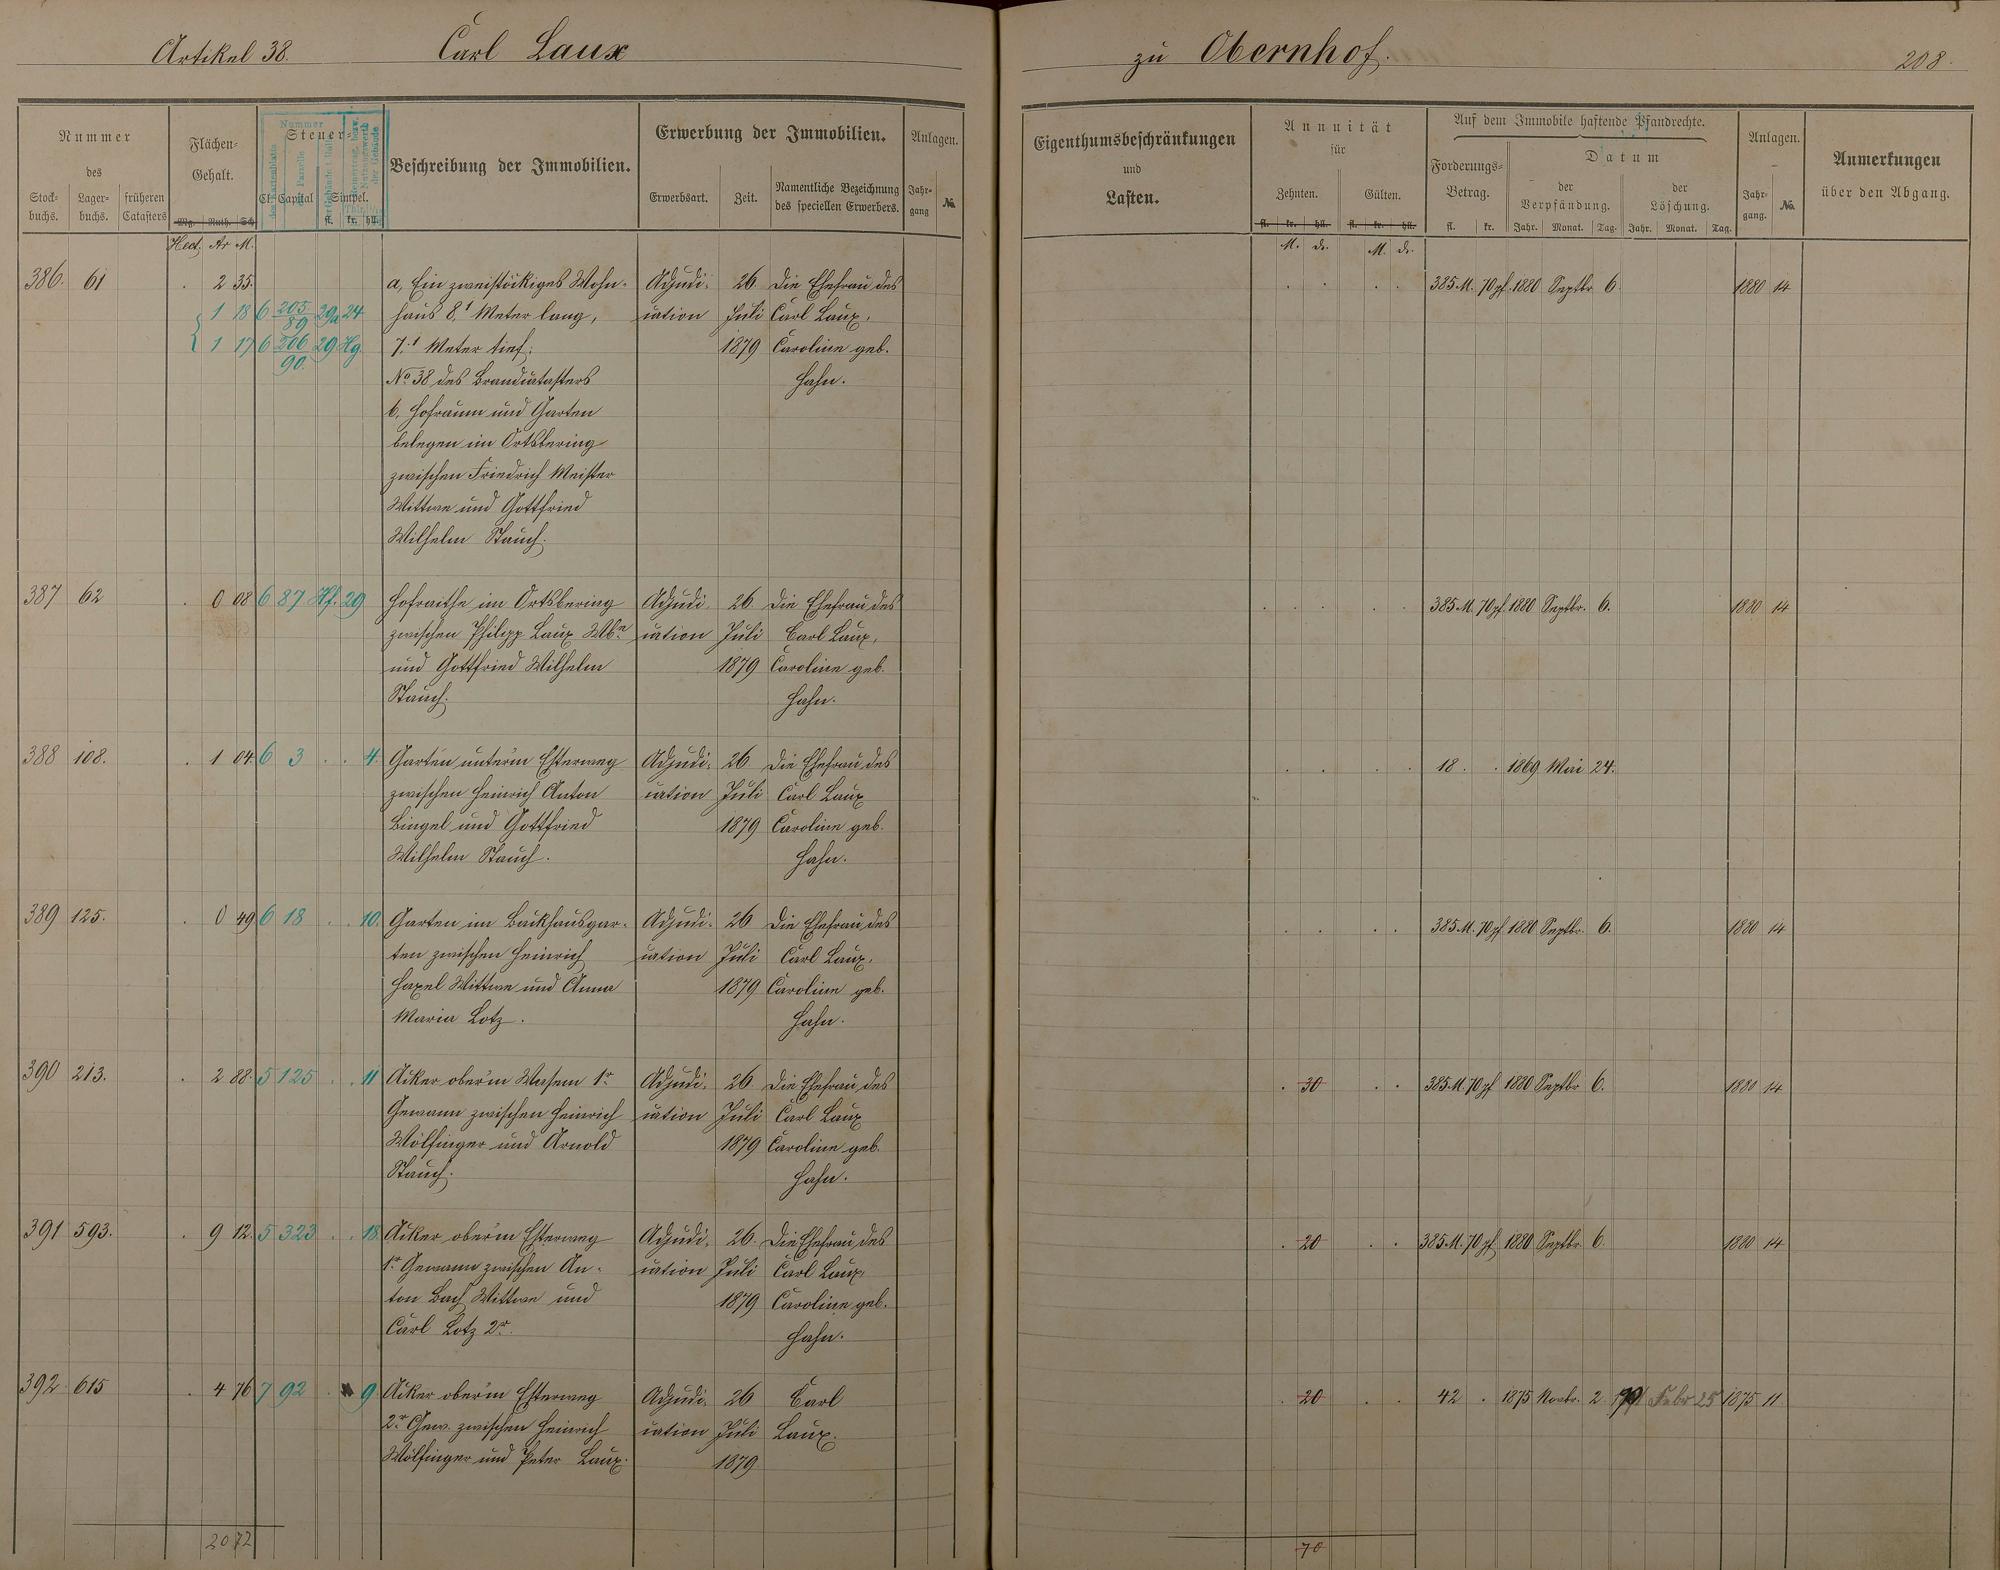 Artikel 38. Carl Laux
zu Obernhof. 208.
Nummer
des
Stock-
buchs.
Lager-
buchs.
früheren
Catasters
Flächen-
Gehalt.
Mg. Ruth. Sch.
Steuer-
Cl. Capital Simpel.
fl. kr. hll.
Nummer
Beschreibung der Immobilien.
Erwerbung der Immobilien.
Erwerbsart. Zeit. Namentliche Bezeichnung
des speciellen Erwerbers.
Anlagen.
Jahr-
gang
No.
Eigenthumsbeschränkungen
und
Lasten.
Annuität
für
Zehnten. Gülten.
fl. kr. hll. fl. kr. hll.
Auf dem Immobile haftende Pfandrechte.
Forderungs-
Betrag.
fl. kr.
Datum
der
Verpfändung.
der
Löschung.
Jahr. Monat. Tag. Jahr. Monat. Tag.
Anlagen.
Jahr-
gang.
No.
Anmerkungen
über den Abgang.
Hect. Ar M.
386. 61 . 2 35. a, Ein zweistöckiges Wohn- Adjudi- 26. Die Ehefrau des
1 18 6 205/89 29a 24 haus 8,1 Meter lang, cation Juli Carl Laux,
1 17 6 206/90. 29 Hg. 7,1 Meter tief; 1879 Caroline geb.
No 38 des Brandcatasters Hahn.
b, Hofraum und Garten
belegen im Ortsbering
zwischen Friedrich Meister
Wittwe und Gottfried
Wilhelm Stauch.
385 M. 70 pf. 1880 Septbr 6. 1880 14
387 62 . 0 08 6 87 Hf. 29 Hofraithe im Ortsbering Adjudi- 26. Die Ehefrau des
zwischen Philipp Laux Wbe cation Juli Carl Laux,
und Gottfried Wilhelm 1879 Caroline geb.
Stauch. Hahn.
385 M. 70 pf. 1880 Septbr. 6. 1880 14
388 108. . 1 04. 6 3 . . 4. Garten unterm Esterweg Adjudi- 26 Die Ehefrau des
zwischen Heinrich Anton cation Juli Carl Laux
Bingel und Gottfried 1879 Caroline geb.
Wilhelm Stauch. Hahn.
18. . 1869 Mai 24.
389 125. . 0 49 6 18 . . 10. Garten im Backhausgar- Adjudi- 26 Die Ehefrau des
ten zwischen Heinrich cation Juli Carl Laux,
Haxel Wittwe und Anna 1879 Caroline geb.
Maria Lotz. Hahn.
385 M. 70 pf 1880 Septbr. 6. 1880 14
390 213. . 2 88. 5 125 . . 11 Acker ober'm Wasem 1r Adjudi- 26 Die Ehefrau des
Gewann zwischen Heinrich cation Juli Carl Laux
Wölfinger und Arnold 1879 Caroline geb.
Stauch. Hahn.
. 30 . . 385 M. 70 pf 1880 Septbr 6. 1880 14
391 593. . 9 12. 5 323 . . 18 Acker ober'm Esterweg Adjudi- 26. Die Ehefrau des
1r Gewann zwischen An- cation Juli Carl Laux,
ton Bach Wittwe und 1879 Caroline geb.
Carl Lotz 2r. Hahn.
. 20 . . 385 M. 70 pf 1880 Septbr. 6. 1880 14
392 615 . 4 76 7 92 . 9 Acker ober'm Esterweg Adjudi- 26 Carl
2r Gew. zwischen Heinrich cation Juli Laux.
Wölfinger und Peter Laux. 1879
. 20 . . 42 . 1875 Novbr. 2. Febr 25 1875 11.
20 72
70